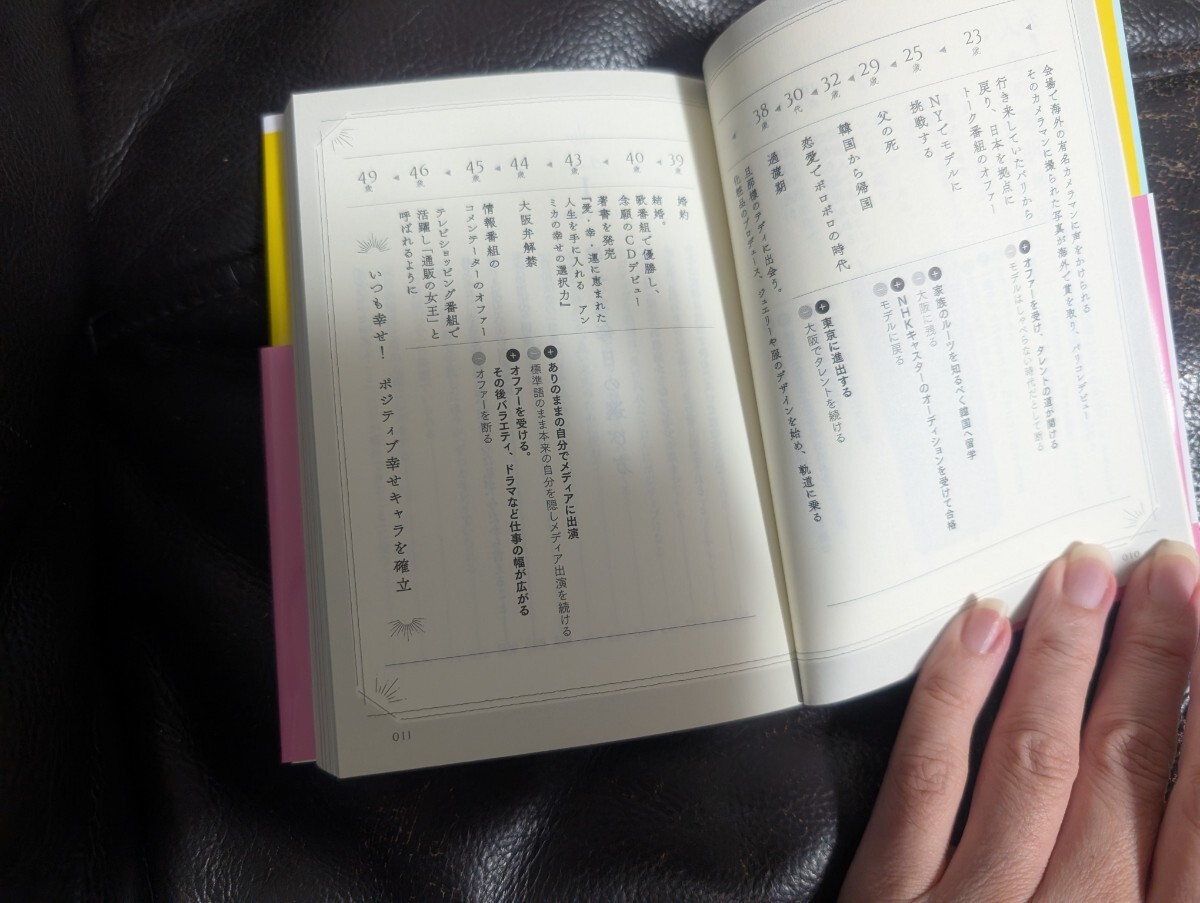 会場で海外の有名カメラマンに声をかけられる
そのカメラマンに撮られた写真が海外で賞を取り、パリコレデビュー
23歳
行き来していたパリから
戻り、日本を拠点に
トーク番組のオファー
+オファーを受け、タレントの道が開ける
−モデルはしゃべらない時代だとして断る
25歳
NYでモデルに
挑戦する
29歳
父の死
+家族のルーツを知るべく韓国へ留学
−大阪に残る
32歳
韓国から帰国
+NHKキャスターのオーディションを受けて合格
−モデルに戻る
30代
恋愛でボロボロの時代
38歳
過渡期
+東京に進出する
−大阪でタレントを続ける
旦那様のテディに出会う。
化粧品のプロデュース、ジュエリーや服のデザインを始め、軌道に乗る
010
39歳
婚約
40歳
結婚。
歌番組で優勝し、
念願のCDデビュー
43歳
著書を発売
『愛・幸・運に恵まれた
人生を手に入れる アン
ミカの幸せの選択力』
44歳
大阪弁解禁
+ありのままの自分でメディアに出演
−標準語のまま本来の自分を隠しメディア出演を続ける
45歳
情報番組の
コメンテーターのオファー
+オファーを受ける。
その後バラエティ、ドラマなど仕事の幅が広がる
−オファーを断る
46歳
テレビショッピング番組で
活躍し「通販の女王」と
呼ばれるように
49歳
いつも幸せ! ポジティブ幸せキャラを確立
011